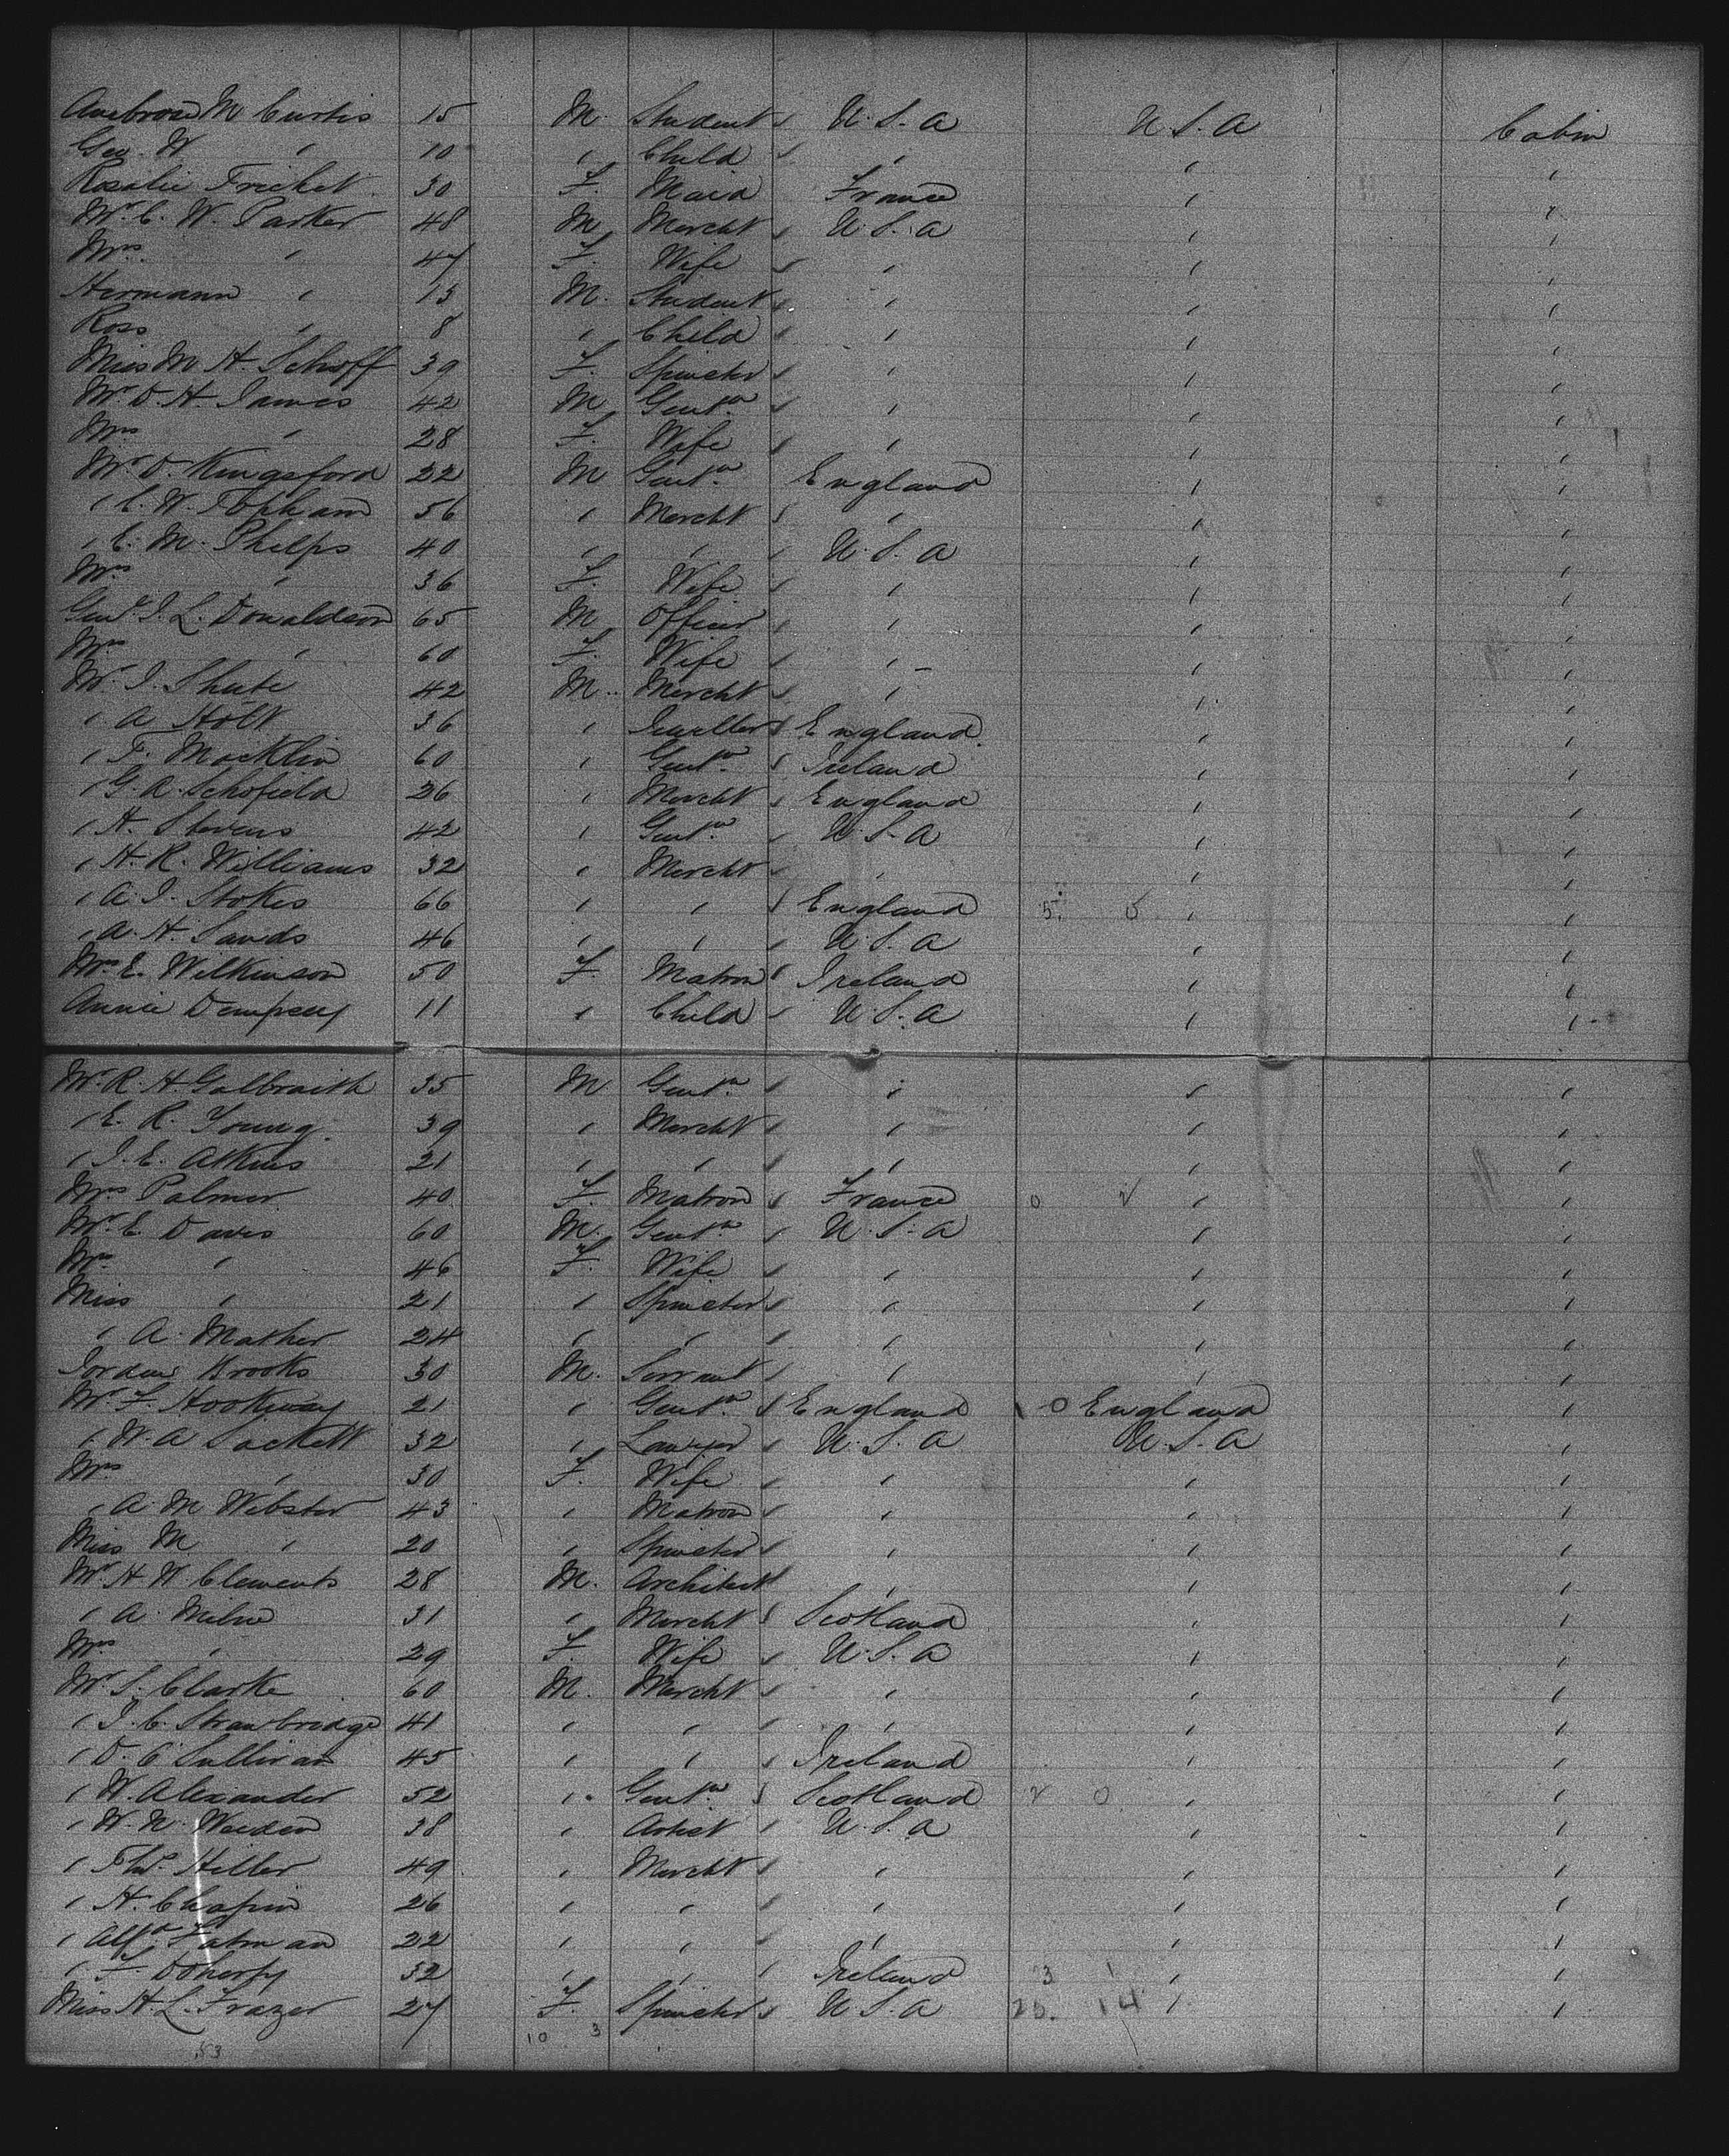 Ambrose M Curtis 15 M. Student U.S.A U.S.A Cabin
Geo. W " 10 " Child " " "
Rosalie Frichet 30 F. Maid France " "
Mr. C. W. Parker 48 M Mercht U.S.A " "
Mrs " 47 F. Wife " " "
Hermann " 13 M. Student " " "
Ross " 8 " Child " " "
Miss M. H. Schoff 39 F. Spinster " " "
Mr. D. H. James 42 M Gentn " " "
Mrs " 28 F. Wife " " "
Mr D. Kingsford 22 M Gentn England " "
" C. W. Topham 56 " Mercht " " "
" C. M. Phelps 40 " " U.S.A " "
Mrs " 36 F. Wife " " "
Genl J. L. Donaldson 65 M Officer " " "
Mrs " 60 F. Wife " " "
Mr. J. Shute 42 M. Mercht " " "
" A Holt 36 " Jeweller England " "
" F. Macklin 60 " Gentn Ireland " "
" G. A. Schofield 26 " Mercht England " "
" H. Stevens 42 " Gentn U.S.A " "
" H. R. Williams 32 " Mercht " " "
" A. J. Stokes 66 " " England 5 0 " "
" A. H. Sands 46 " " U.S.A " "
Mrs E. Wilkinson 50 F. Matron Ireland " "
Annie Dempsey 11 " Child U.S.A " "
Mr. R. H Galbraith 35 M Gentn " " "
" E. R. Young 39 " Mercht " " "
" J. E. Atkins 21 " " " " "
Mrs Palmer 40 F. Matron France 0 2 " "
Mr. E. Davis 60 M. Gentn U.S.A " "
Mrs " 46 F. Wife " " "
Miss " 21 " Spinster " " "
" A. Mather 24 " " " " "
Jordan Brooks 30 M. Servant " " "
Mr. F. Hookway 21 " Gentn England 1 0 England "
" W. A Sackett 32 " Lawyer U.S.A U.S.A "
Mrs " 30 F. Wife " " "
" A. M Webster 43 " Matron " " "
Miss M. " 20 " Spinster " " "
Mr. H. W Clements 28 M. Architect " " "
" A. Milne 31 " Mercht Scotland " "
Mrs " 29 F. Wife U.S.A " "
Mr. S. Clarke 60 M. Mercht " " "
" J. C. Strawbridge 41 " " " " "
" D. O Sullivan 45 " " Ireland " "
" W. Alexander 52 " Gentn Scotland 2 0 " "
" W. N. 38 " Artist U.S.A " "
" Heller 49 " Mercht " " "
" H. Chapin 26 " " " " "
" Alfd 22 " " " " "
" F. Doherty 32 " " Ireland 3 1 " "
Miss H. L. Frazer 27 F. Spinster U.S.A 25. 14 " "
10 3
53